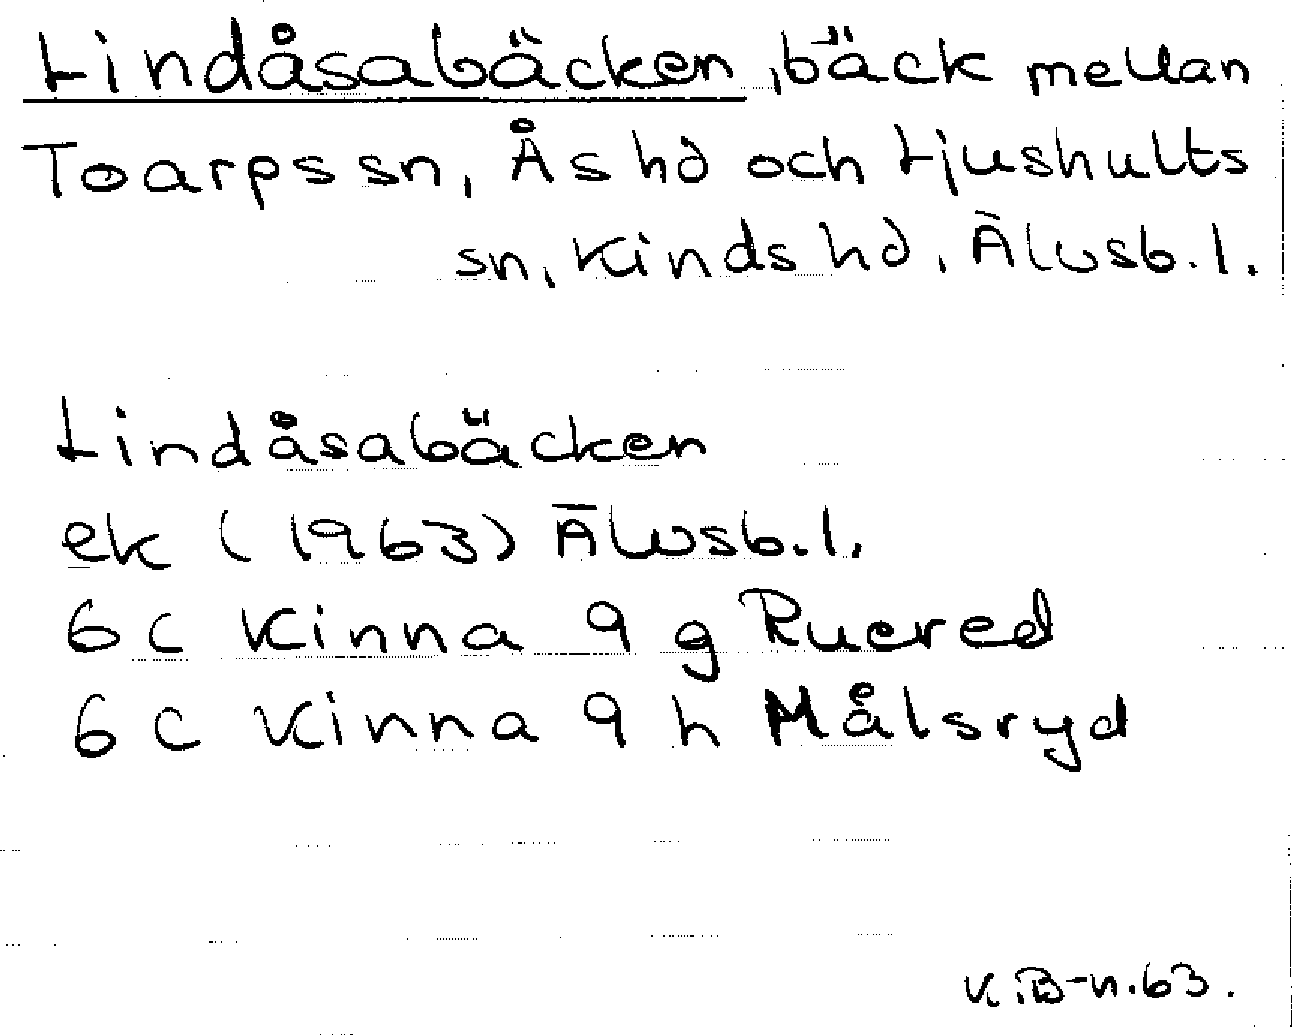 Lindåsabäcken, bäck mellan
Toarps sn, Ås hd och Ljushults
sn, Kinds hd, Älvsb. l.
Lindåsabäcken
ek (1963) Älvsb. l.
6 C Kinna 9 g Rucred
6 C Kinna 9 h Målsryd
K. B-n. 63.